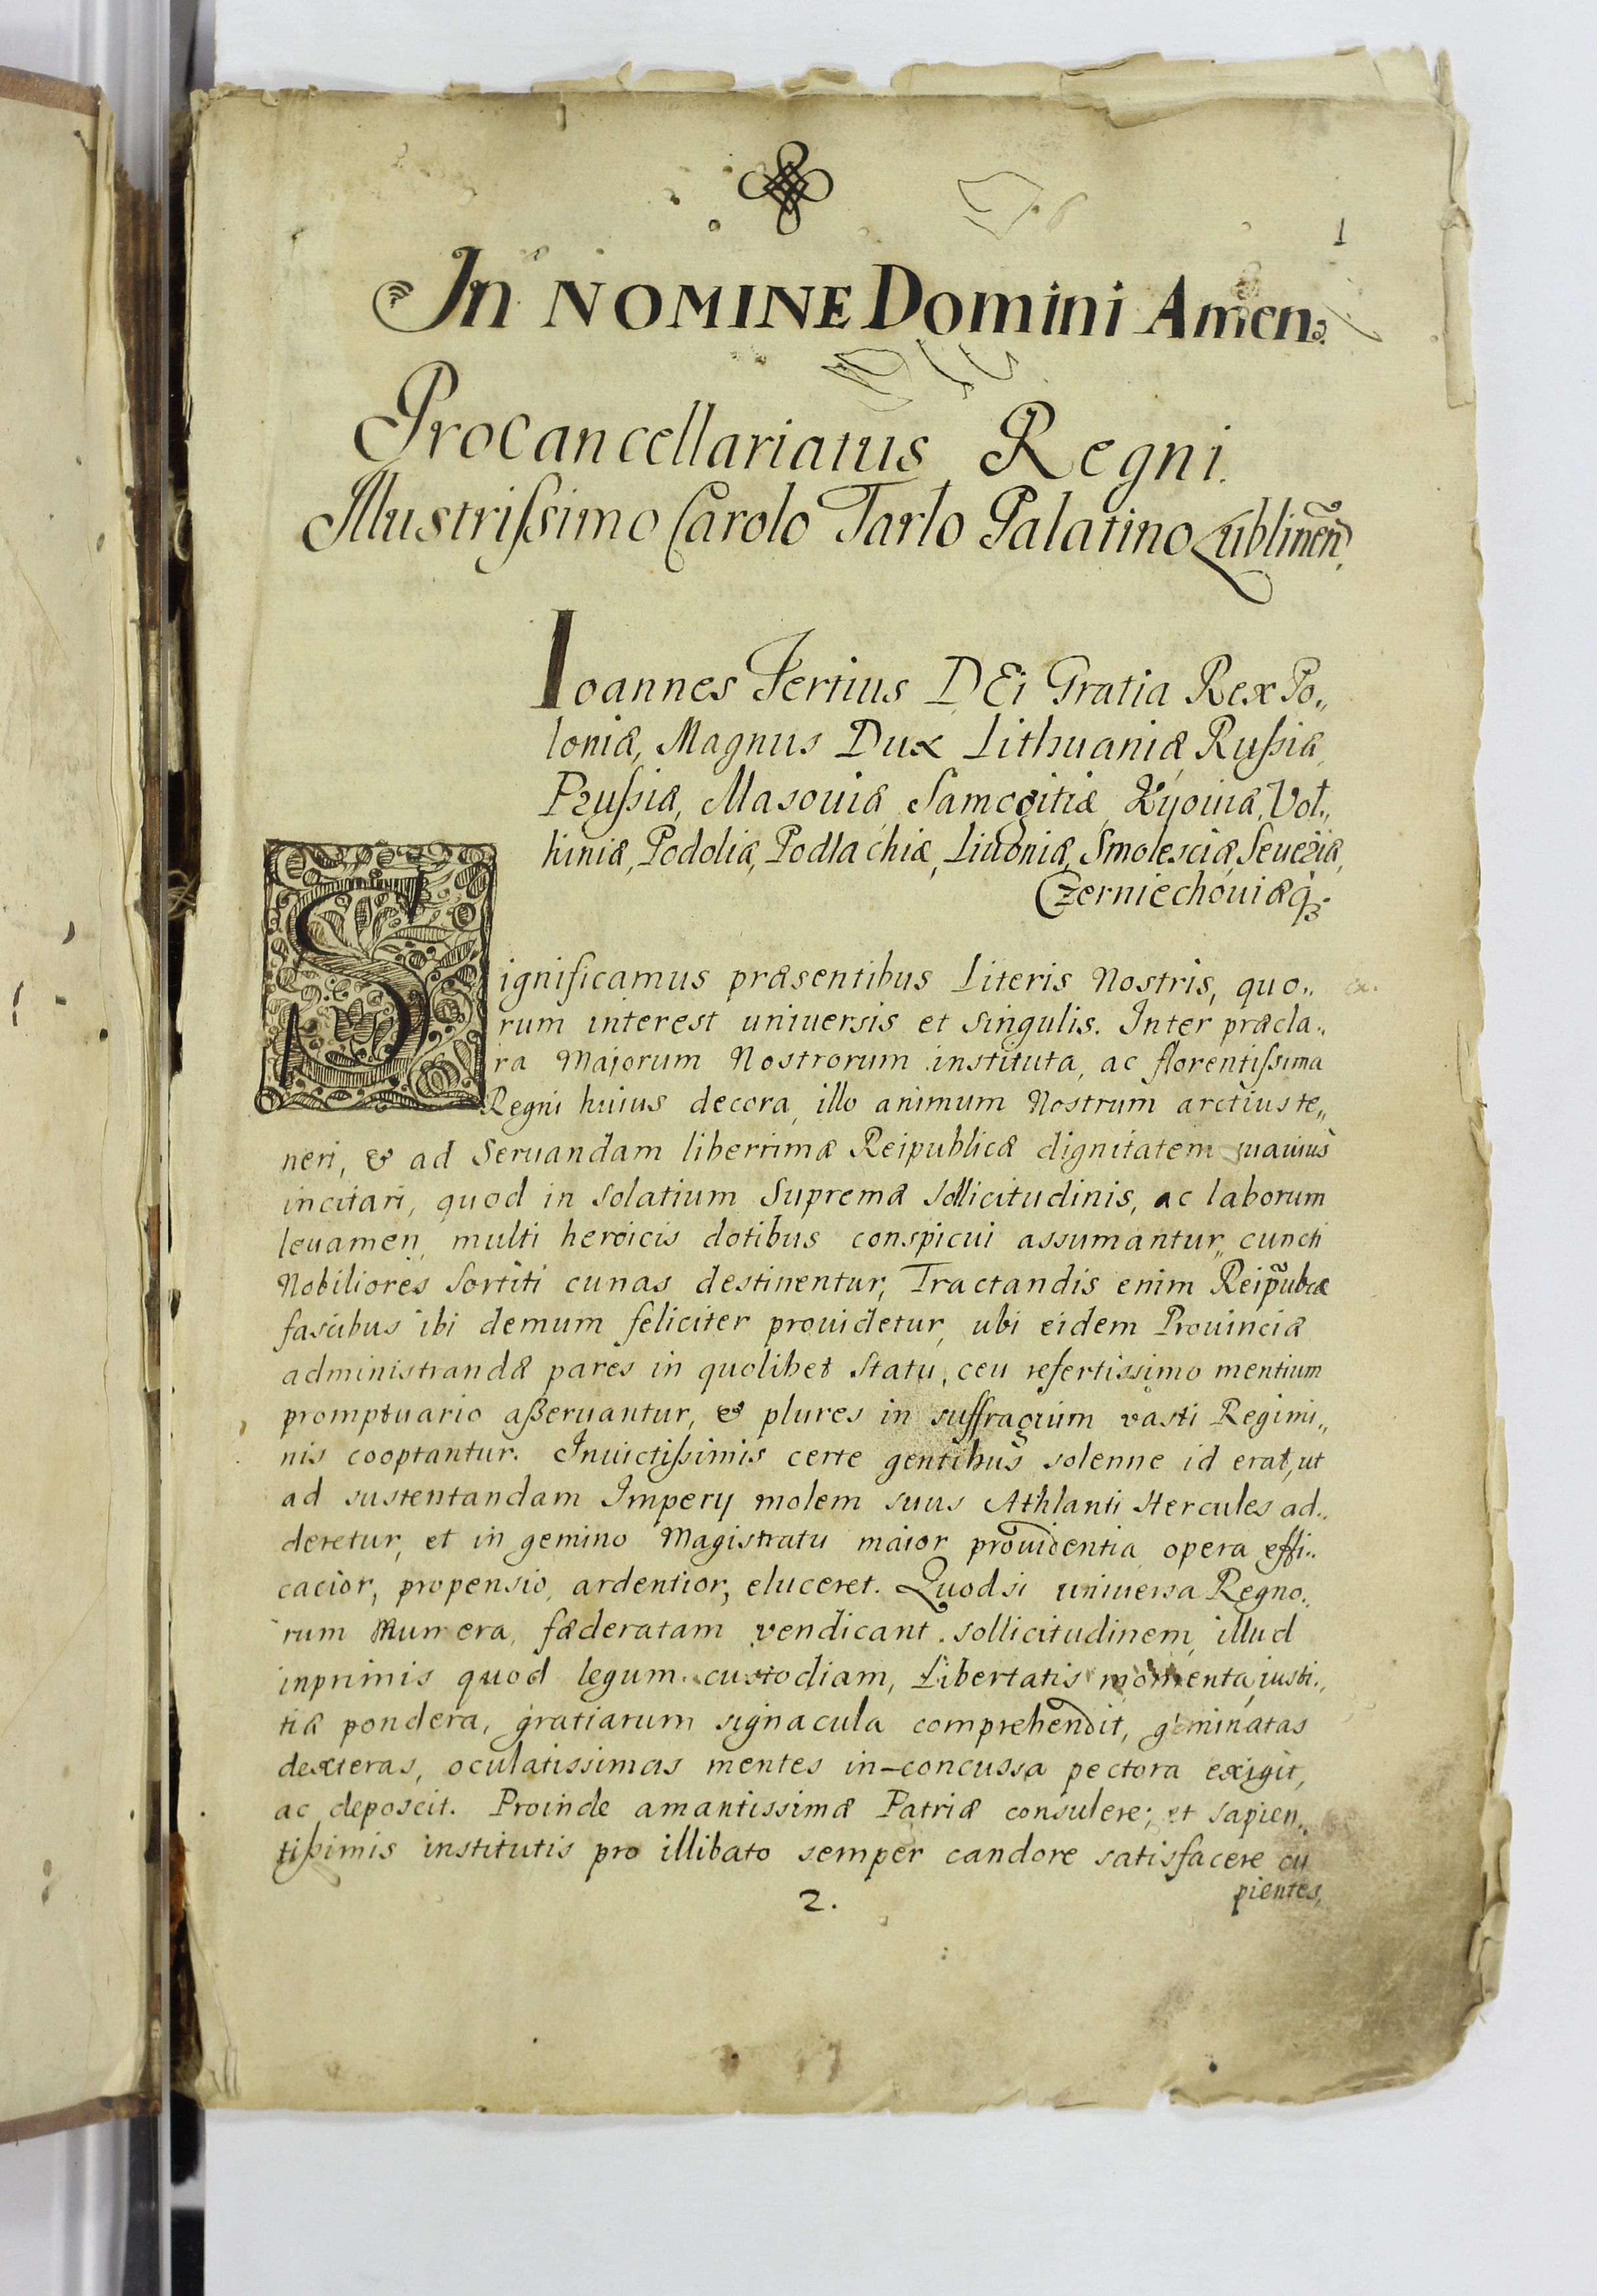 1
In NOMINE Domini Amen.
Procancellariatus Regni.
Illustrissimo Carolo Tarlo Palatino Lublinen.
Ioannes Tertius DEi Gratia Rex Po„
loniæ, Magnus Dux Lithuaniæ Russiæ,
Prussiæ, Masouiæ, Samogitiæ, Kijouiæ, Vol„
hiniæ, Podoliæ, Podlachiæ, Liuoniæ, Smolesciæ, Seueriæ,
Czerniechouiæq3.
Significamus præsentibus Literis Nostris, quo„
rum interest uniuersis et singulis. Inter præcla„
ra Majorum Nostrorum instituta, ac florentissima
Regni huius decora, illo animum Nostrum arctius te„
neri, & ad Seruandam liberrimæ Reipublicæ dignitatem suauius
incitari, quod in solatium Supremæ sollicitudinis, ac laborum
leuamen, multi heroicis dotibus conspicui assumantur, cuncti
Nobiliores Sortiti cunas destinentur, Tractandis enim Reipubcæ
fascibus ibi demum feliciter prouidetur, ubi eidem Prouinciæ
administrandæ pares in quolibet Statu, ceu refertissimo mentium
promptuario aßeruantur, & plures in suffragium vasti Regimi„
nis cooptantur. Inuictissimis certe gentibus solenne id erat, ut
ad sustentandam Imperij molem suus Athlanti Hercules ad„
deretur, et in gemino Magistratu maior prouidentia, opera effi„
cacior, propensio, ardentior, eluceret. Quodsi uniuersa Regno„
rum Munera, fæderatam vendicant sollicitudinem, illud
inprimis quod legum custodiam, Libertatis momenta, iusti„
tiæ pondera, gratiarum signacula comprehendit, geminatas
dexteras, oculatissimas mentes in-concussa pectora exigit,
ac deposcit. Proinde amantissimæ Patriæ consulere; et sapien„
tissimis institutis pro illibato semper candore satisfacere cu
pientes,
2.